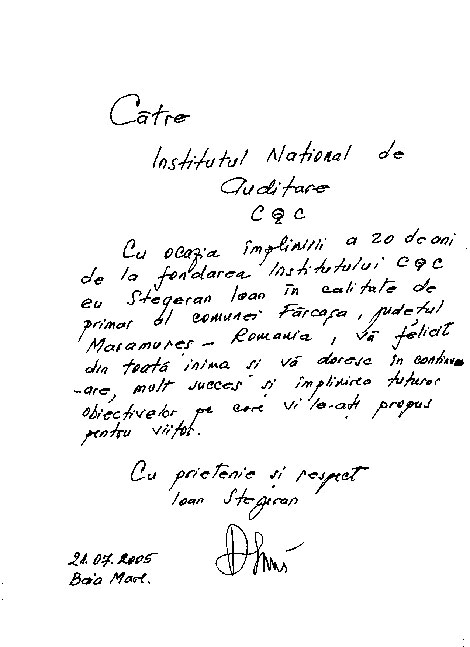 Către
Institutul National de
Auditare
CQC
Cu ocazia împlinirii a 20 de ani
de la fondarea Institutului CQC
eu Stegeran Ioan în calitate de
primar al comunei Fărcașa, județul
Maramureș - Romania, vă felicit
din toată inima si vă doresc în continu
-are, mult succes si împlinirea tuturor
obiectivelor pe care vi le-ați propus
pentru viitor.
Cu prietenie si respect
Ioan Stegeran
21.07.2005
Baia Mare.